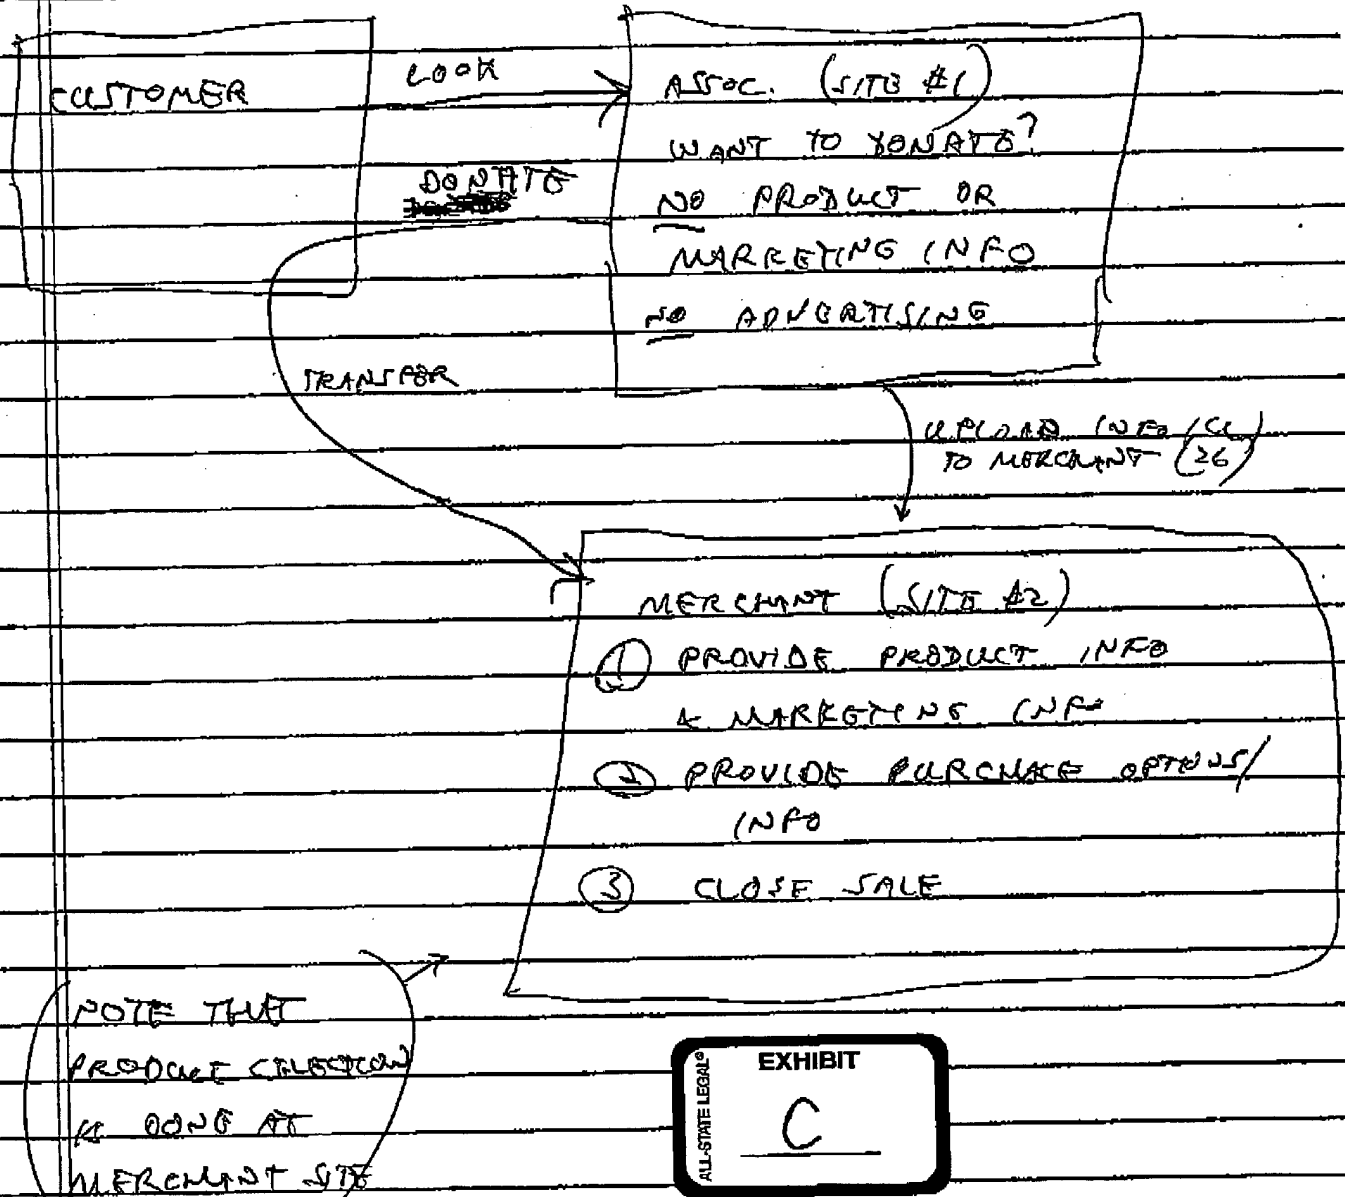 CUSTOMER
LOOK
ASSOC. (SITE #1)
WANT TO DONATE?
NO PRODUCT OR
MARKETING INFO
NO ADVERTISING
DONATE
TRANSFER
UPLOAD INFO
TO MERCHANT (26)
MERCHANT (SITE #2)
1 PROVIDE PRODUCT INFO
& MARKETING INFO
2 PROVIDE PURCHACE OPTIONS/
INFO
3 CLOSE SALE
NOTE THAT
PRODUCT SELECTION
IS DONE AT
MERCHANT SITE
ALL-STATE LEGAL®
EXHIBIT
C